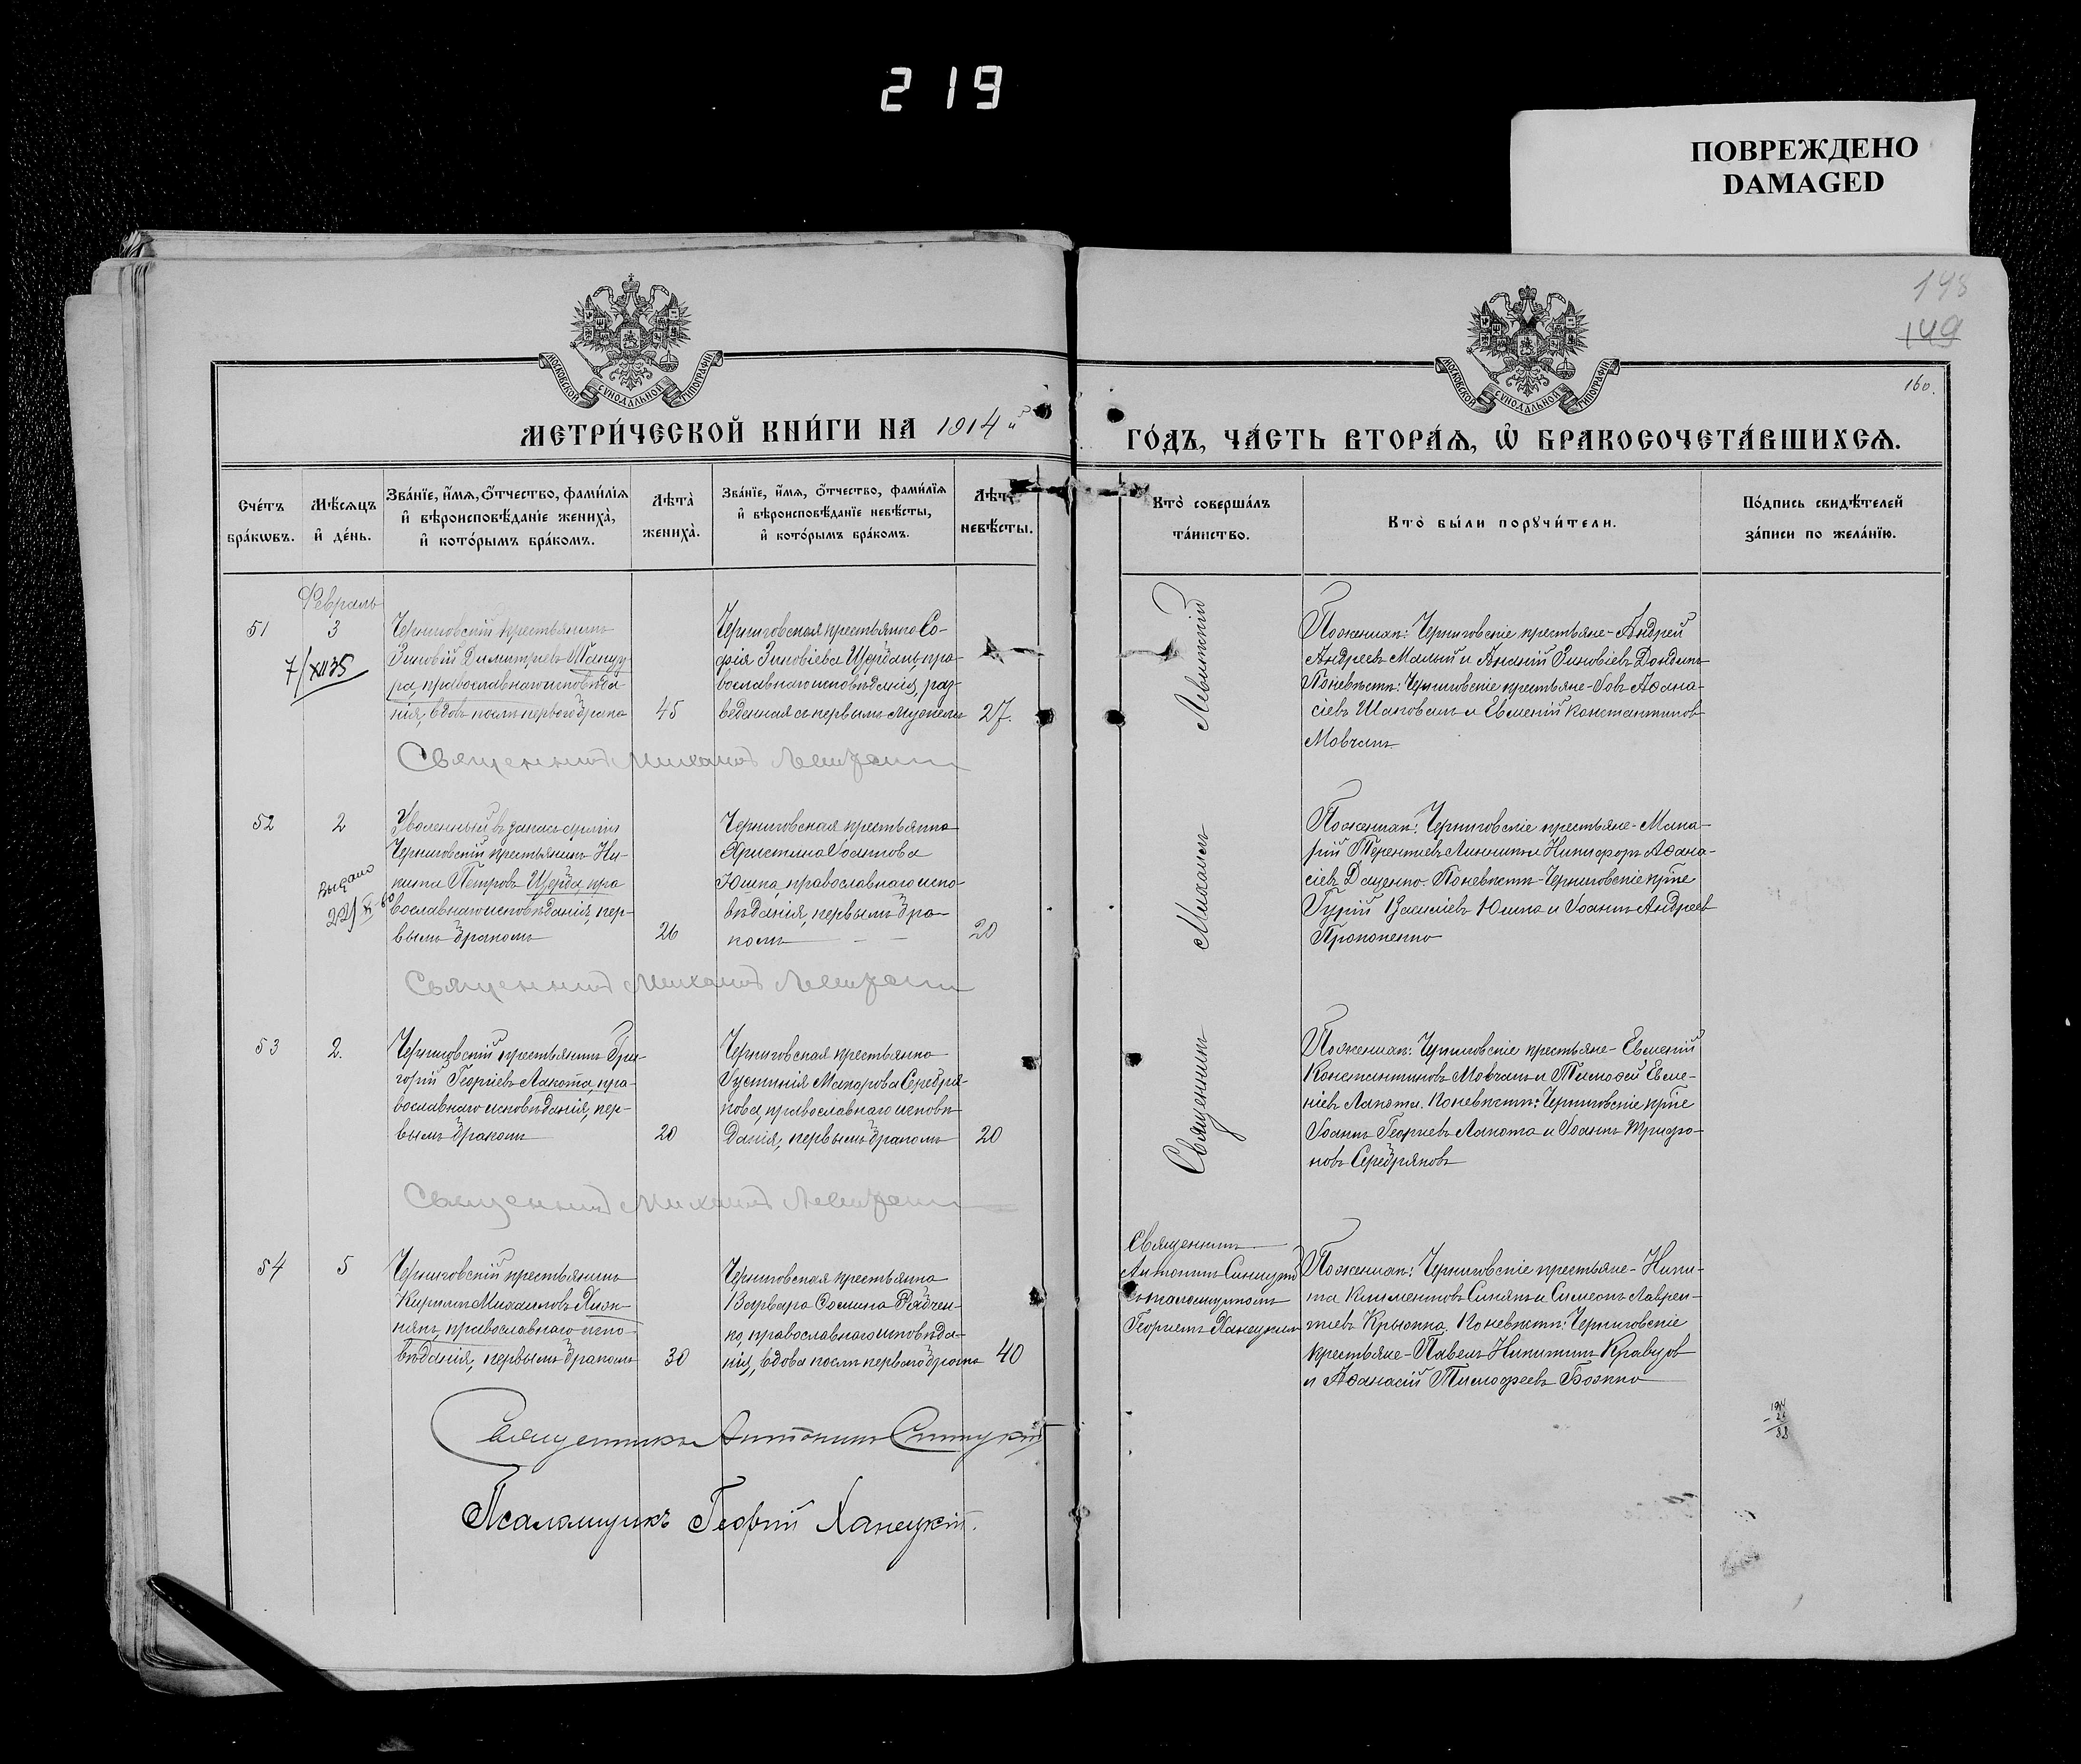 219
ПОВРЕЖДЕНО
DAMAGED
148
149
160.
МОСКОВСКОЙ СѴНОДАЛЬНОЙ ТИПОГРАФІИ
МОСКОВСКОЙ СѴНОДАЛЬНОЙ ТИПОГРАФІИ
МЕТРИ́ЧЕСКОЙ КНИ́ГИ НА 1914 й
ГО́ДЪ, ЧА́СТЬ ВТОРА́Ѧ, Ѡ҆ БРАКОСОЧЕТА́ВШИХСѦ.
Сче́тъ
бра́кѡвъ.
Мѣ́сѧцъ
и҆ де́нь.
Зва́нїе, и҆́мѧ, ѻ҆́тчество, фами́лїѧ
и҆ вѣроисповѣ́данїе жениха̀,
и҆ кото́рымъ бра́комъ.
Лѣта̀
жениха̀.
Зва́нїе, и҆́мѧ, ѻ҆́тчество, фами́лїѧ
и҆ вѣроисповѣ́данїе невѣ́сты,
и҆ кото́рымъ бра́комъ.
Лѣт
невѣ́сты.
Кто̀ соверша́лъ
та́инство.
Кто̀ бы́ли порꙋчи́тели.
По́дпись свидѣ́телей
за́писи по жела́нїю.
Февраль
51
3
7/XII 35
Черниговскій крестьянинъ
Зиновій Димитріевъ Шанду
ра, православнаго исповѣда-
нія, вдовъ послѣ перваго брака
45
Черниговская крестьянка Со-
фія Зиновіева Щербань, пра-
вославнаго исповѣданія, раз-
веденная съ первымъ мужемъ
27.
Священникъ Михаилъ Левитскій
По женихѣ: Черниговскіе крестьяне - Андрей
Андреевъ Малый и Ананій Зиновіевъ Дондикъ
По невѣстѣ: Черниговскіе крестьяне - Іовъ Аѳана-
сіевъ Шаповалъ и Евменій Константиновъ
Мовчанъ
Священникъ Михаилъ
52
2
выдано
Уволенный въ запасъ арміи
Черниговскій крестьянинъ Ни-
кита Петровъ Щерба, пра
вославнаго исповѣданія, пер-
вымъ бракомъ
26
Черниговская крестьянка
Христина Іоаннова
Юшка, православнаго испо-
вѣданія, первымъ бра-
комъ
20
По женихѣ: Черниговскіе крестьяне - Мака-
рій Терентіевъ и Никифоръ Аѳана-
сіевъ Даценко. По невѣстѣ - Черниговскіе крⷭ҇не
Гурій Василіевъ Юшка и Іоаннъ Андреев
Прокопенко
Священникъ Михаилъ
53
2.
Черниговскій крестьянинъ Гри-
горій Георгіевъ Лакота, пра-
вославнаго исповѣданія, пер-
вымъ бракомъ
20
Черниговская крестьянка
Іустинія Макарова Серебря-
кова, православнаго исповѣ
данія, первымъ бракомъ
20
По женихѣ: Черниговскіе крестьяне - Евменій
Константиновъ Мовчанъ и Тимоѳей Евме-
ніевъ Лакота. По невѣстѣ: Черниговскіе крⷭ҇не
Іоаннъ Георгіевъ Лакота и Іоаннъ Трифо-
новъ Серебряковъ
Священникъ Михаилъ
54
5
Черниговскій крестьянинъ
Кириллъ Михаиловъ Хиж-
някъ, православнаго испо-
вѣданія, первымъ бракомъ
30
Черниговская крестьянка
Варвара Ѳомина Рябчен-
ко, православнаго исповѣда-
нія, вдова послѣ перваго брака
40
Священникъ
Антонинъ Синицкій
съ псаломщикомъ
Георгіемъ Ханецкимъ
По женихѣ: Черниговскіе крестьяне - Ники-
та Климентовъ Синякъ и Симеонъ Лаврен-
тіевъ Крюкка. По невѣстѣ: Черниговскіе
крестьяне - Павелъ Никитинъ Кравцов
и Аѳанасій Тимофеевъ Божко
Священникъ Антонинъ Синицкій
Псаломщикъ Георгій Ханецкій.